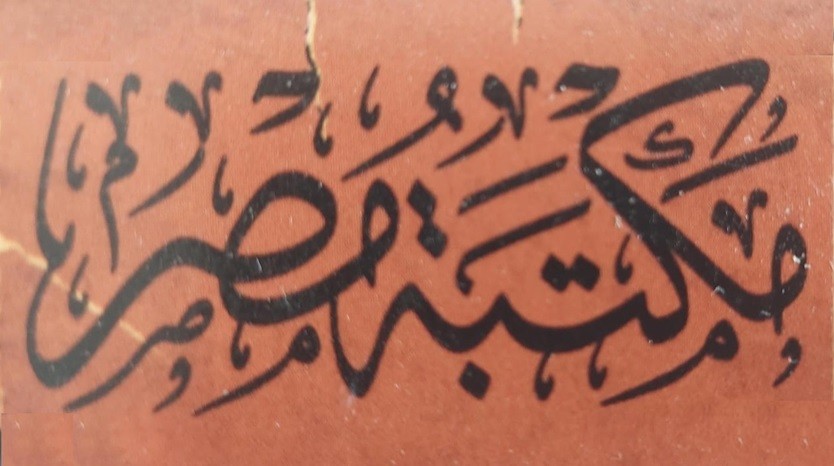 مكتبة مصر